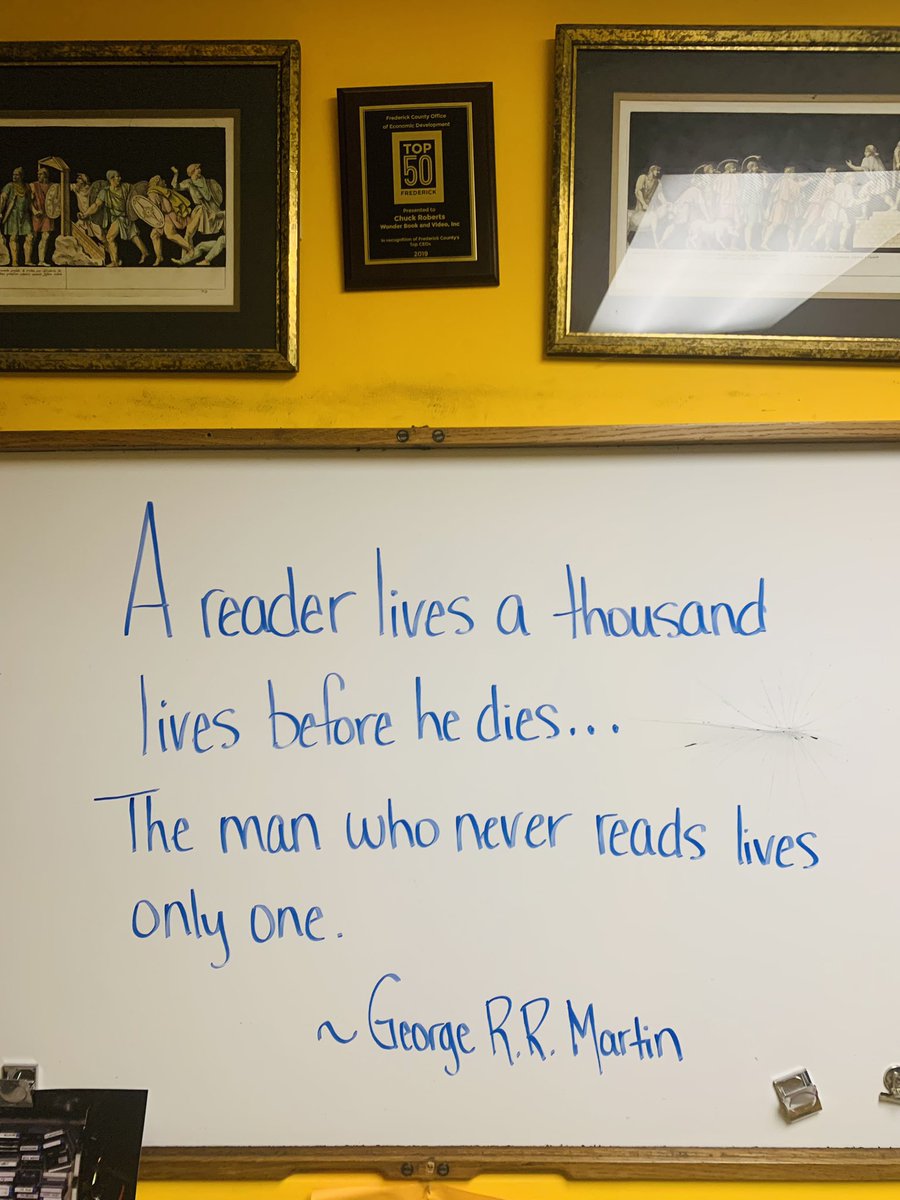 Frederick County Office
of Economic Development
TOP
50
FREDERICK
Presented to
Chuck Roberts
Wonder Book and Video, Inc
In recognition of Frederick County's
Top CEOs
2019
A reader lives a thousand
lives before he dies...
The man who never reads lives
only one.
~George R.R. Martin